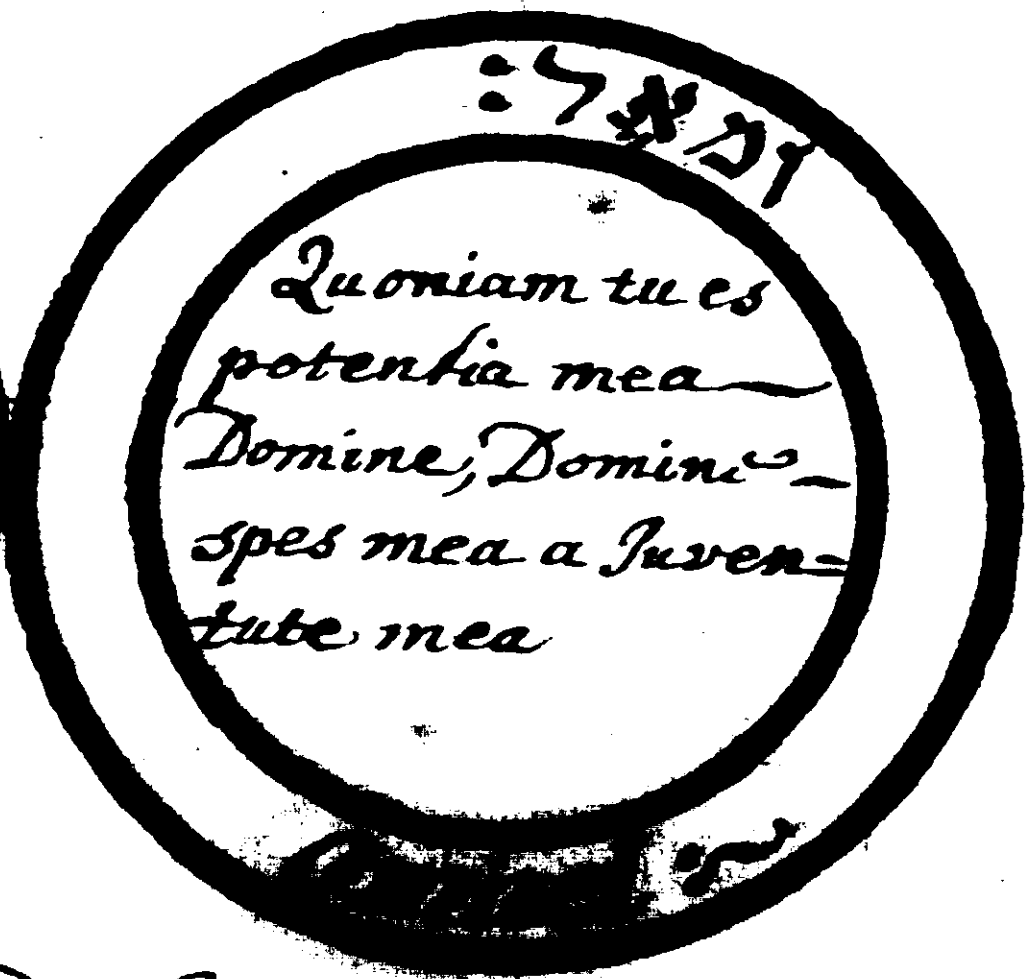 ומאל:
Quoniam tu es
potentia mea
Domine, Domine
spes mea a Juven=
tute mea